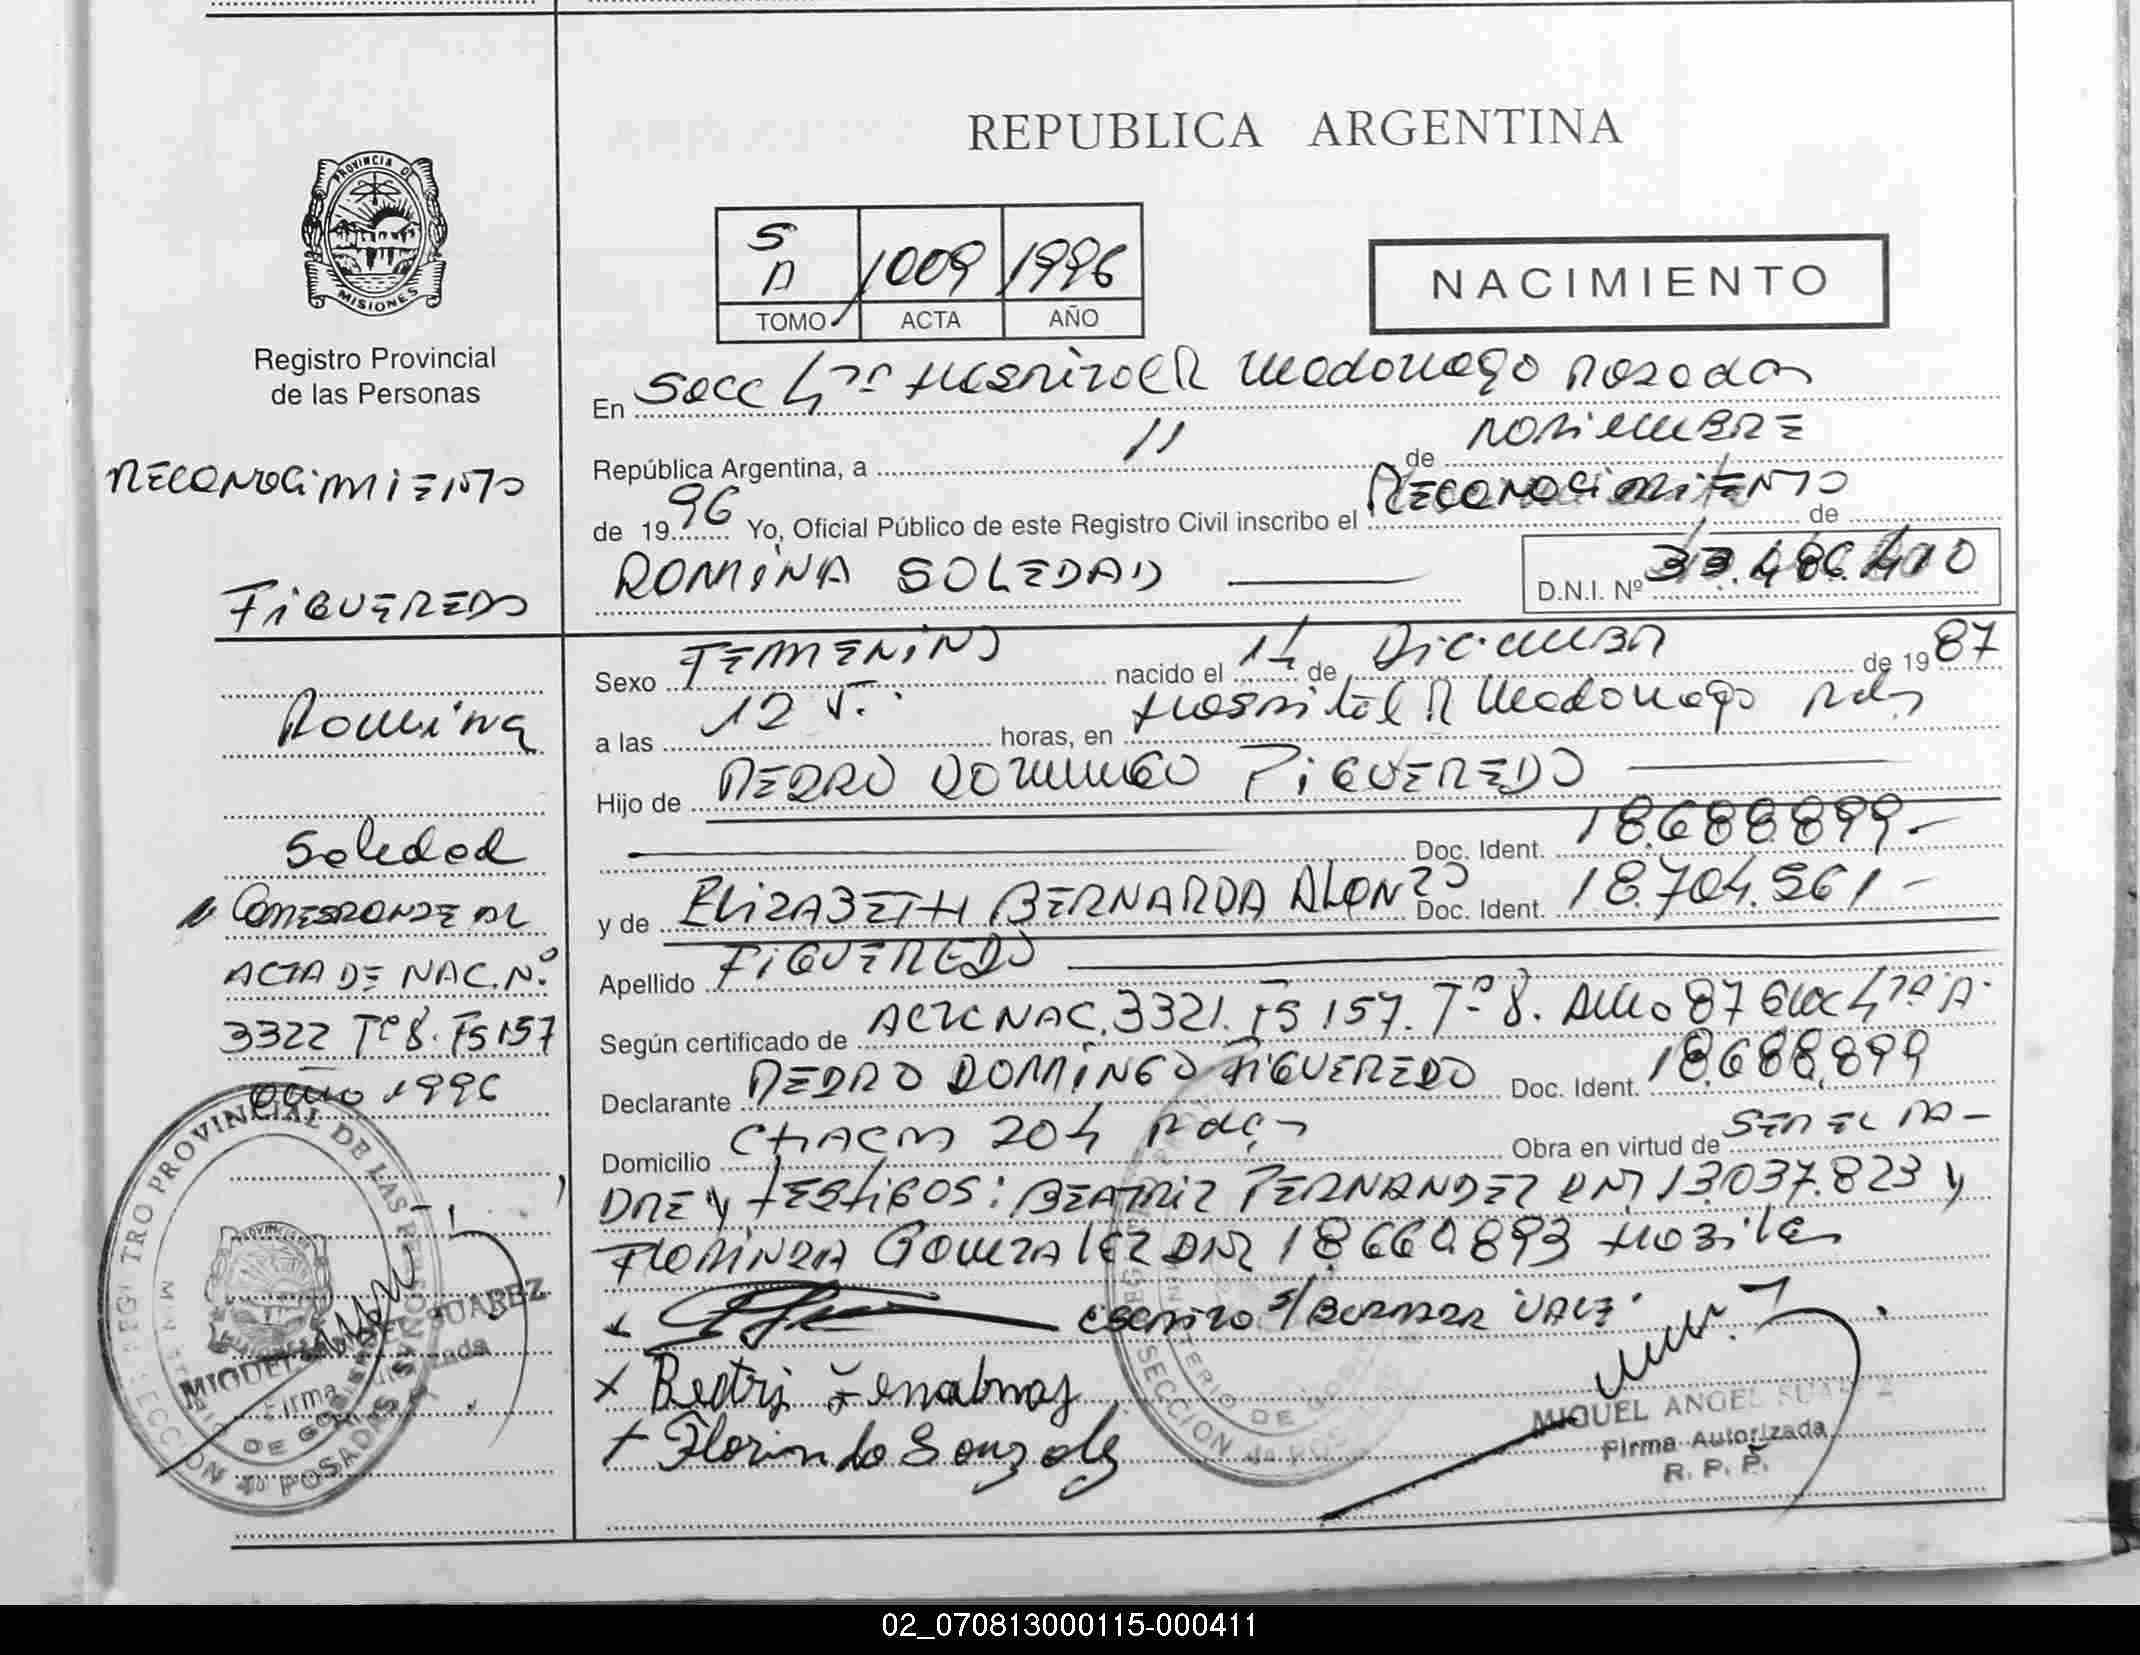 REPUBLICA ARGENTINA
PROVINCIA DE
MISIONES
Registro Provincial
de las Personas
S
A 1009 1996
TOMO ACTA AÑO
NACIMIENTO
RECONOCIMIENTO
FIGUEREDO
Romina
Soledad
CORRESPONDE AL
ACTA DE NAC. Nº
3322 Tº 8. Fs 157
año 1996
REGISTRO PROVINCIAL DE LAS PERSONAS
SECCION 4a POSADAS MISIONES
MINISTERIO DE GOBIERNO
MIGUEL ANGEL SUAREZ
Firma Autorizada
En Secc 4ta Hospital R Madariaga Posadas
República Argentina, a 11 de NOVIEMBRE
de 1996 Yo, Oficial Público de este Registro Civil inscribo el RECONOCIMIENTO de
ROMINA SOLEDAD D.N.I. Nº 33.486.410
Sexo FEMENINO nacido el 14 de Diciembre de 1987
a las 12 horas, en Hospital R Madariaga Pdas
Hijo de PEDRO DOMINGO FIGUEREDO
Doc. Ident. 18.688.899.-
y de ELIZABETH BERNARDA ALONZO Doc. Ident. 18.704.561-
Apellido FIGUEREDO
Según certificado de ACTA NAC. 3321. Fs 157. Tº 8. Año 87 Secc 4ta A.
Declarante PEDRO DOMINGO FIGUEREDO Doc. Ident. 18.688.899
Domicilio CHACO 204 Pdas Obra en virtud de SER EL PA-
DRE y TESTIGOS: BEATRIZ FERNANDEZ DNI 13.037.823 y
FLORINDA GONZALEZ DNI 18.660.893 Hábiles
escrito s/Borrar "VALE"
x Beatriz
+ Florinda Gonzalez
SECCION 4a POSADAS
MINISTERIO DE GOBIERNO
MIGUEL ANGEL SUAREZ
Firma Autorizada
R. P. P.
02_070813000115-000411